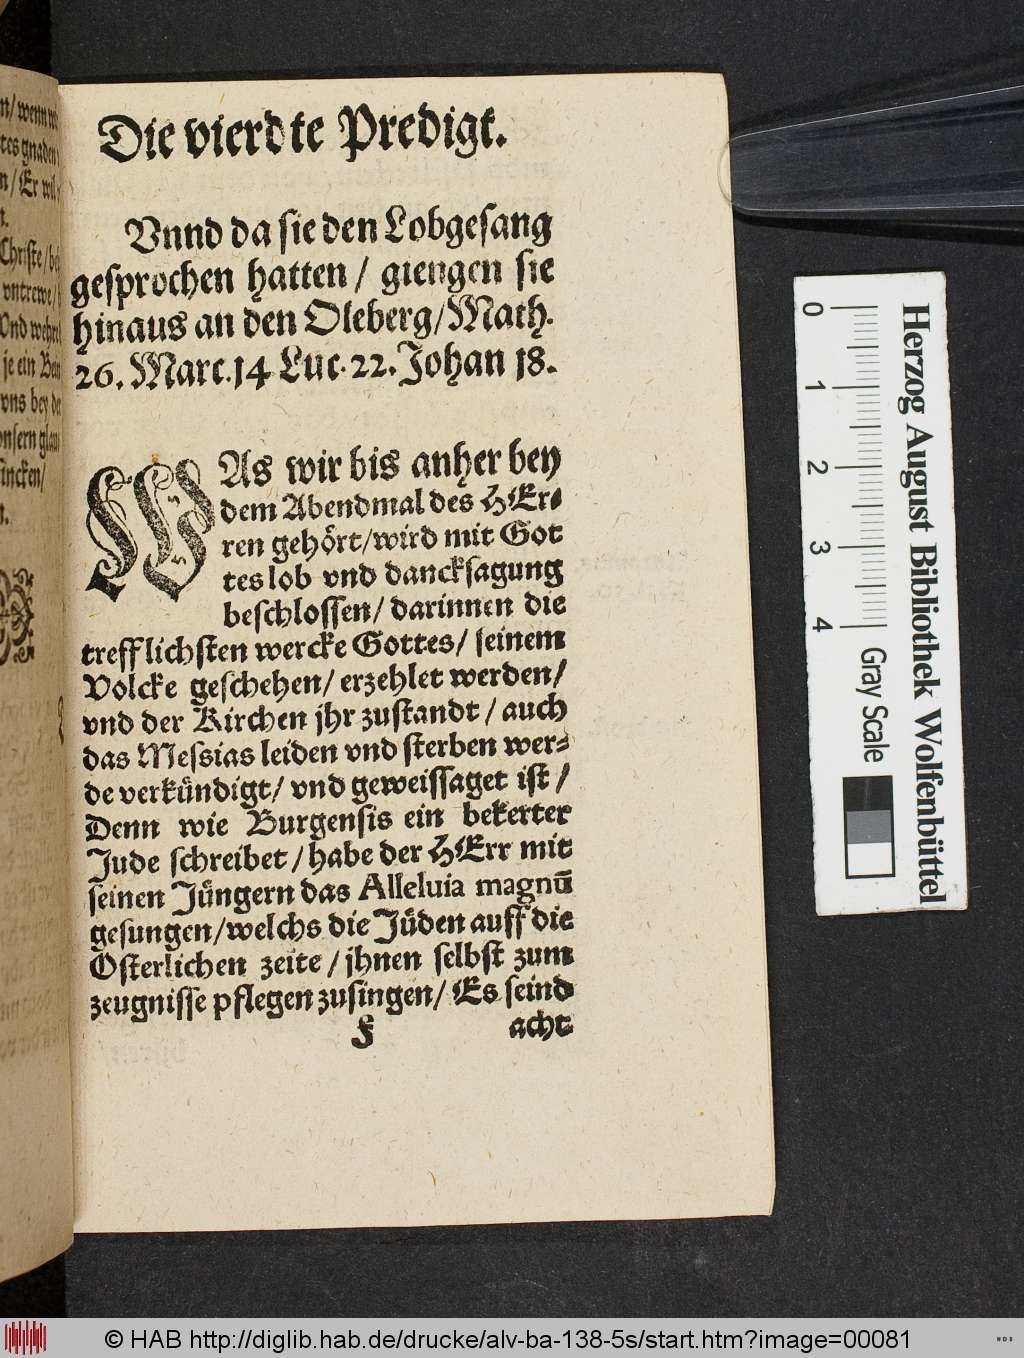 Die vierdte Predigt.
Vnnd da sie den Lobgesang
gesprochen hatten / giengen sie
hinaus an den Oleberg/Math.
26. Marc. 14 Luc. 22. Johan 18.
WAs wir bis anher bey
dem Abendmal des HEr-
ren gehört/wird mit Got
tes lob vnd dancksagung
beschlossen/ darinnen die
trefflichsten wercke Gottes/ seinem
Volcke geschehen/ erzehlet werden/
vnd der Kirchen jhr zustandt / auch
das Messias leiden vnd sterben wer-
de verkündigt/ vnd geweissaget ist /
Denn wie Burgensis ein bekerter
Jude schreibet / habe der HErr mit
seinen Jüngern das Alleluia magnū
gesungen/welchs die Jüden auff die
Osterlichen zeite / jhnen selbst zum
zeugnisse pflegen zusingen/ Es seind
F acht
n/ wenn
tes gnaden
n/ Er wil
Christe/
vntrewe/
Vnd
je ein
vns bey
vnsern
sincken/
0 1 2 3 4
Gray Scale
Herzog August Bibliothek Wolfenbüttel
© HAB http://diglib.hab.de/drucke/alv-ba-138-5s/start.htm?image=00081